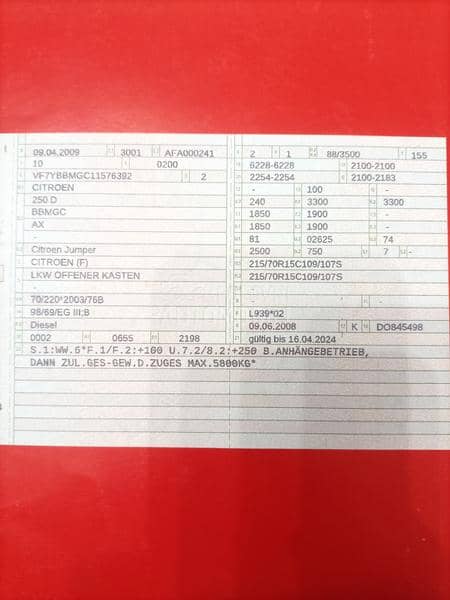 09.04.2009 3001 AFA000241
10 0200
VF7YBBMGC11576392 2
CITROEN
250 D
BBMGC
AX
-
Citroen Jumper
CITROEN (F)
LKW OFFENER KASTEN
-
70/220*2003/76B
98/69/EG III;B
Diesel
0002 0655 2198
2 1 88/3500 155
6228-6228 2100-2100
2254-2254 2100-2183
- 100 -
240 3300 3300
1850 1900 -
1850 1900 -
81 02625 74
2500 750 7 -
215/70R15C109/107S
215/70R15C109/107S
-
- -
L939*02
09.06.2008 K DO845498
gültig bis 16.04.2024
S.1:WW.6*F.1/F.2:+100 U.7.2/8.2:+250 B.ANHÄNGEBETRIEB,
DANN ZUL.GES-GEW.D.ZUGES MAX.5800KG*